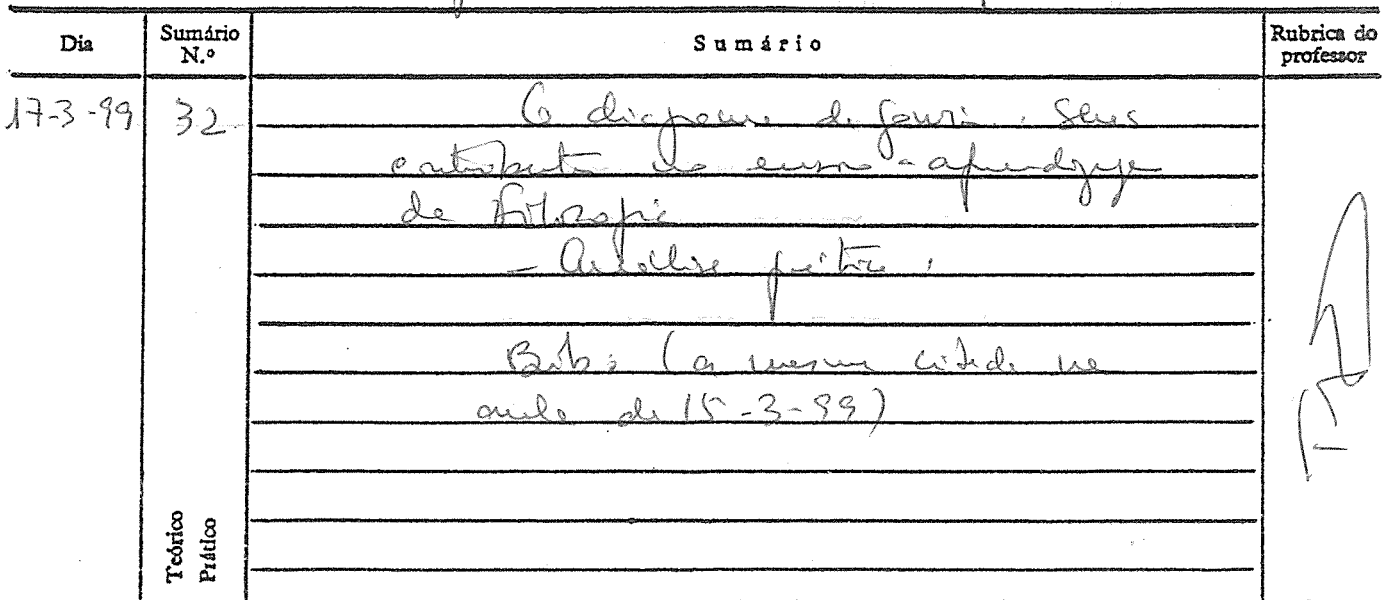 Dia
Sumário N.º
Sumário
Rubrica do professor
17-3-99
32
O diagrama de Gowin. Seus
contributos no ensino-aprendizagem
da Filosofia
- Análise prática.
Bib: (a mesma citada na
aula de 15-3-99)
Teórico
Prático